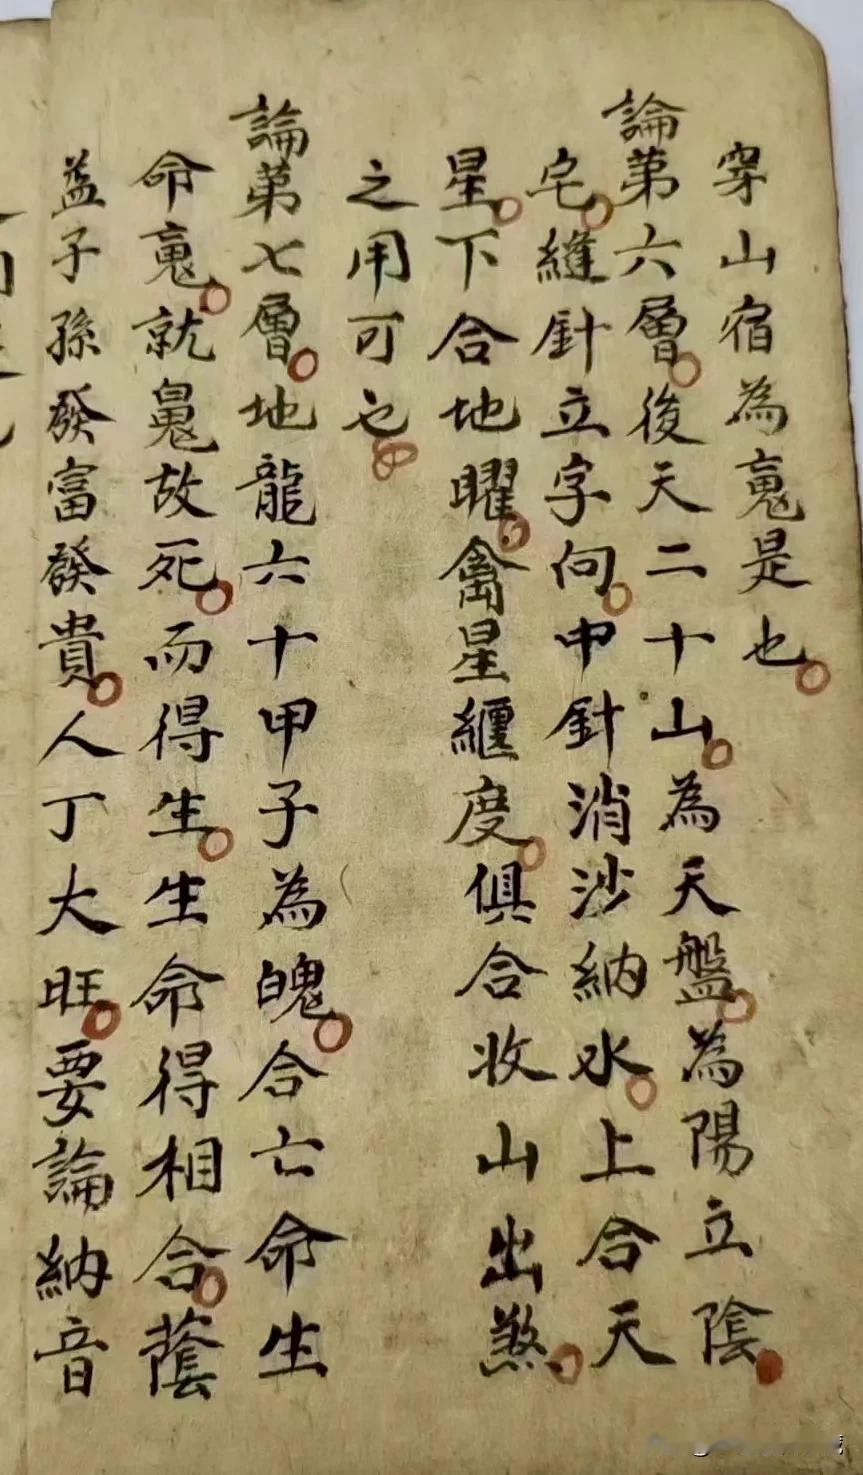 穿山宿為䰟是也
論第六層後天二十山為天盤為陽立陰
宅縫針立字向中針消沙納水上合天
星下合地曜禽星纏度俱合收山出煞
之用可也
論第七層地龍六十甲子為魄合亡命生
命䰟就魄故死而得生生命得相合蔭
益子孫發富發貴人丁大旺要論納音